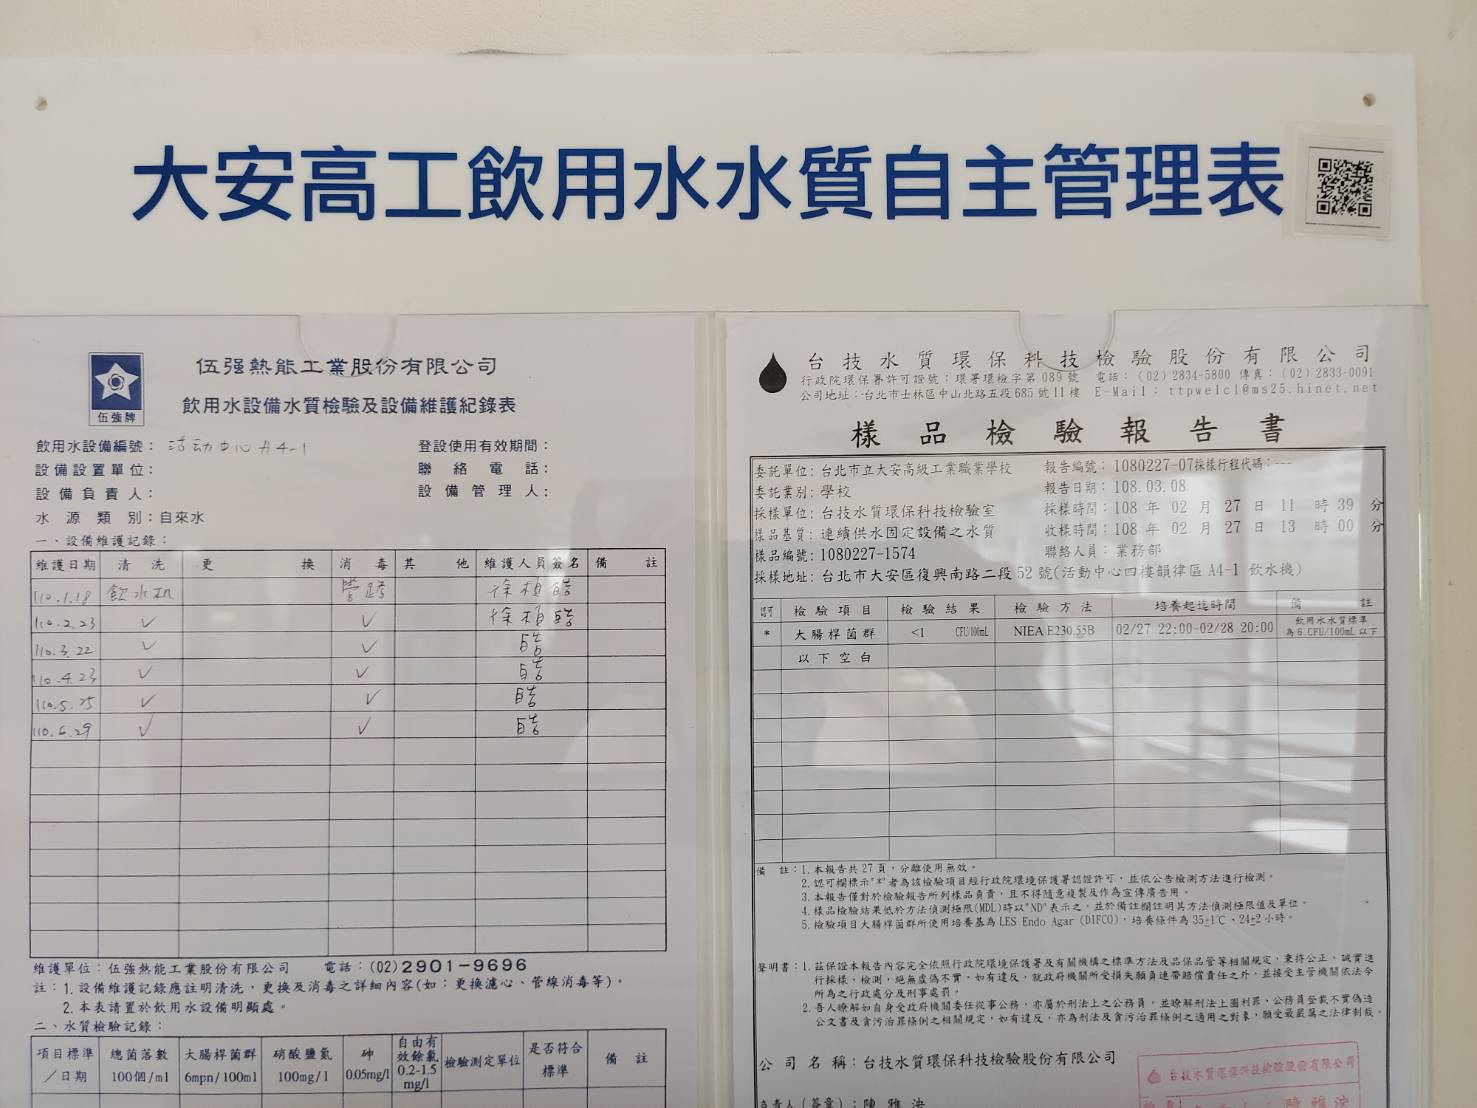 大安高工飲用水水質自主管理表
伍強牌
伍强熱能工業股份有限公司
飲用水設備水質檢驗及設備維護紀錄表
飲用水設備編號： 活动中心A4-1
登設使用有效期間：
設備設置單位：
聯絡電話：
設備負責人：
設備管理人：
水源類別：自來水
一、設備維護記錄：
維護日期 清洗 更換 消毒 其他 維護人員簽名 備註
110.1.18 飲水机
110.2.23 ✓ ✓
110.3.22 ✓ ✓
110.4.23 ✓ ✓
110.5.25 ✓ ✓
110.6.29 ✓ ✓
維護單位：伍強熱能工業股份有限公司 電話：(02)2901-9696
註：1.設備維護記錄應註明清洗，更換及消毒之詳細內容(如：更換濾心、管線消毒等)。
2.本表請置於飲用水設備明顯處。
二、水質檢驗記錄：
項目標準／日期 總菌落數 100個/ml 大腸桿菌群 6mpn/100ml 硝酸鹽氮 100mg/l 砷 0.05mg/l 自由有效餘氯 0.2-1.5 mg/l 檢驗測定單位 是否符合標準 備註
台技水質環保科技檢驗股份有限公司
行政院環保署許可證號：環署環檢字第089號 電話：(02)2834-5800 傳真：(02)2833-0091
公司地址：台北市士林區中山北路五段685號11樓 E-Mail：ttpwelcl@ms25.hinet.net
樣品檢驗報告書
委託單位：台北市立大安高級工業職業學校
報告編號：1080227-07採樣行程代碼：---
委託業別：學校
報告日期：108.03.08
採樣單位：台技水質環保科技檢驗室
採樣時間：108 年 02 月 27 日 11 時 39 分
樣品基質：連續供水固定設備之水質
收樣時間：108 年 02 月 27 日 13 時 00 分
樣品編號：1080227-1574
聯絡人員：業務部
採樣地址：台北市大安區復興南路二段52號(活動中心四樓韻律區 A4-1 飲水機)
認可 檢驗項目 檢驗結果 檢驗方法 培養起迄時間 備註
* 大腸桿菌群 <1 CFU/100mL NIEA E230.55B 02/27 22:00-02/28 20:00 飲用水水質標準為6 CFU/100mL以下
以下空白
備註：1.本報告共27頁，分離使用無效。
2.認可欄標示"*"者為該檢驗項目經行政院環境保護署認證許可，並依公告檢測方法進行檢測。
3.本報告僅對於檢驗報告所列樣品負責，且不得隨意複製及作為宣傳廣告用。
4.樣品檢驗結果低於方法偵測極限(MDL)時以"ND"表示之，並於備註欄註明其方法偵測極限值及單位。
5.檢驗項目大腸桿菌群所使用培養基為 LES Endo Agar (DIFCO)，培養條件為 35±1℃、24±2小時。
聲明書：1.茲保證本報告內容完全依照行政院環境保護署及有關機構之標準方法及品保品管等相關規定，秉持公正、誠實進
行採樣、檢測，絕無虛偽不實，如有違反，就政府機關所受損失願負連帶賠償責任之外，並接受主管機關依法令
所為之行政處分及刑事處罰。
2.吾人瞭解如自身受政府機關委任從事公務，亦屬於刑法上之公務員，並瞭解刑法上圖利罪，公務員登載不實偽造
公文書及貪污治罪條例之相關規定，如有違反，亦為刑法及貪污治罪條例之適用之對象，願受最嚴厲之法律制裁。
公司名稱：台技水質環保科技檢驗股份有限公司
台技水質環保科技檢驗股份有限公司
負責人(簽章)：陳雅泱